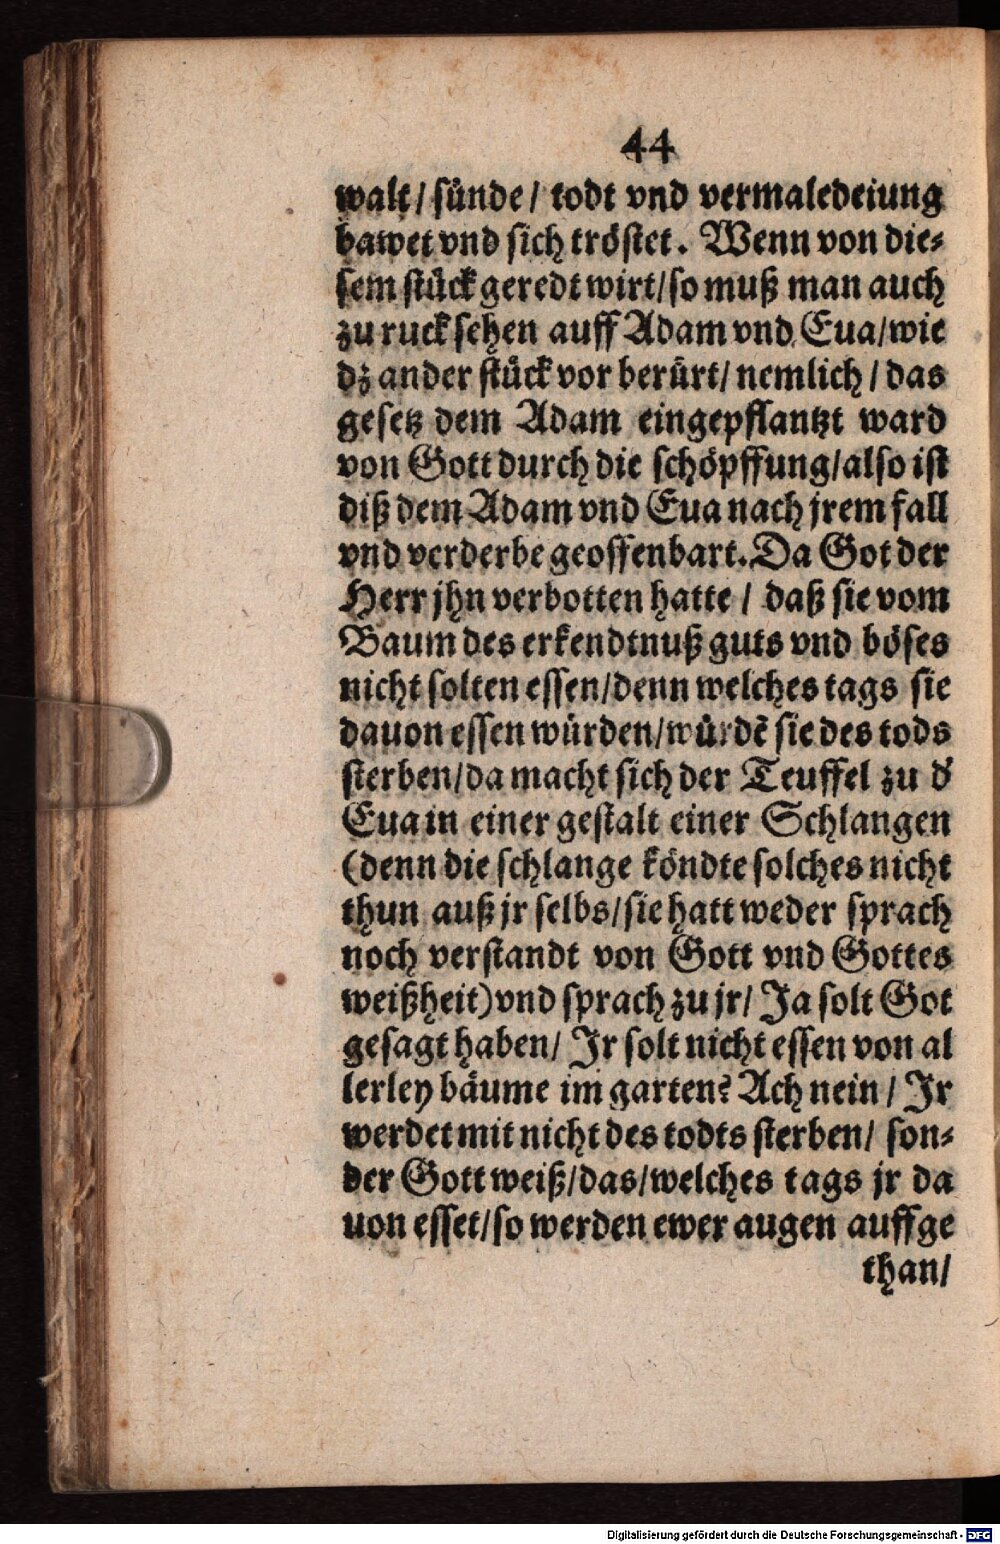 44
walt/ sünde/ todt vnd vermaledeiung
bawet vnd sich tröstet. Wenn von die⸗
sem stück geredt wirt/so muß man auch
zu ruck sehen auff Adam vnd Eua/wie
dz ander stück vor berürt/ nemlich/ das
gesetz dem Adam eingepflantzt ward
von Gott durch die schöpffung/also ist
diß dem Adam vnd Eua nach jrem fall
vnd verderbe geoffenbart. Da Got der
Herr jhn verbotten hatte / daß sie vom
Baum des erkendtnuß guts vnd böses
nicht solten essen/denn welches tags sie
dauon essen würden/würdē sie des tods
sterben/da macht sich der Teuffel zu d'
Eua in einer gestalt einer Schlangen
(denn die schlange köndte solches nicht
thun auß jr selbs/sie hatt weder sprach
noch verstandt von Gott vnd Gottes
weißheit) vnd sprach zu jr/ Ja solt Got
gesagt haben/ Jr solt nicht essen von al
lerley bäume im garten? Ach nein/ Jr
werdet mit nicht des todts sterben/ son⸗
der Gott weiß/das/welches tags jr da
uon esset/so werden ewer augen auffge
than/
Digitalisierung gefördert durch die Deutsche Forschungsgemeinschaft - DFG